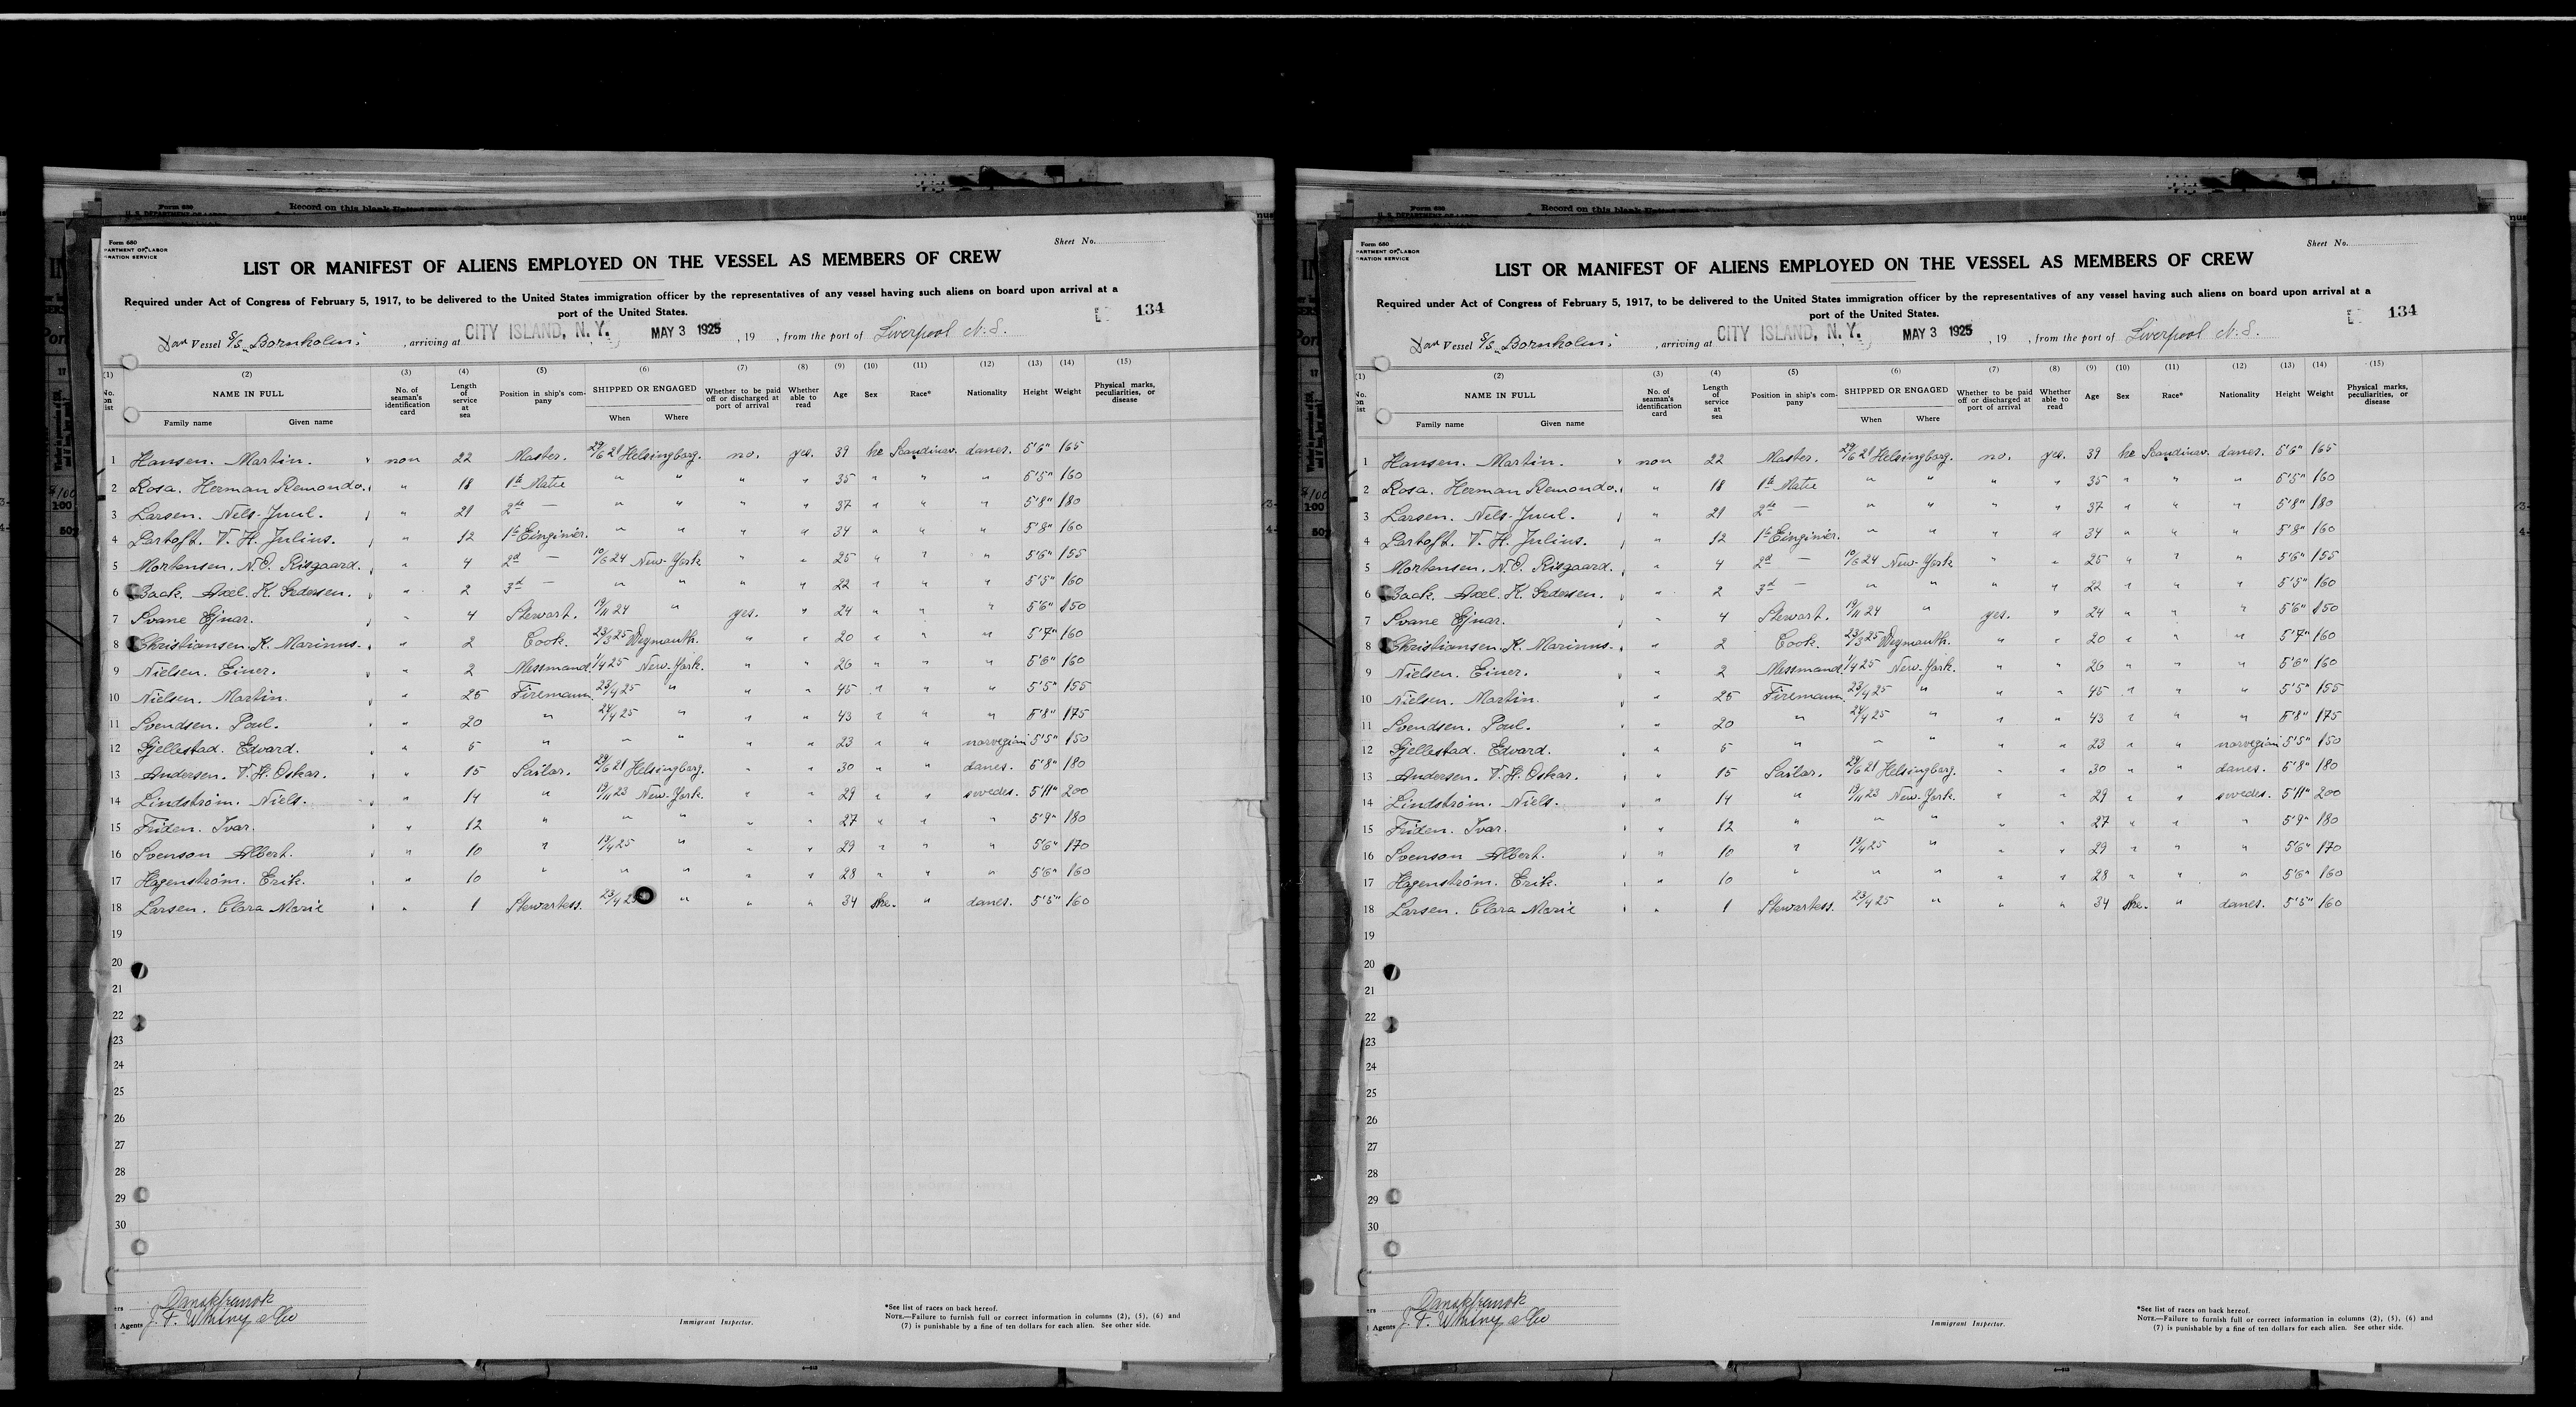 Form 680
U. S. DEPARTMENT OF LABOR
Record on this blank United
Form 680
ARTMENT OF LABOR
RATION SERVICE
Sheet No.
LIST OR MANIFEST OF ALIENS EMPLOYED ON THE VESSEL AS MEMBERS OF CREW
Required under Act of Congress of February 5, 1917, to be delivered to the United States immigration officer by the representatives of any vessel having such aliens on board upon arrival at a
port of the United States.
134
Dan Vessel S/S „Bornholm", arriving at CITY ISLAND, N. Y. MAY 3 1925, 19 , from the port of Liverpool N.S.
(1) (2) (3) (4) (5) (6) (7) (8) (9) (10) (11) (12) (13) (14) (15)
No. on list NAME IN FULL Family name Given name No. of seaman's identification card Length of service at sea Position in ship's company SHIPPED OR ENGAGED When Where Whether to be paid off or discharged at port of arrival Whether able to read Age Sex Race* Nationality Height Weight Physical marks, peculiarities, or disease
1 Hansen. Martin. non 22 Master. 29/6 21 Helsingborg. no. yes. 39 he Scandinav. danes. 5'6" 165
2 Rosa. Herman Remondo. " 18 1st Mate " " " " 35 " " " 5'5" 160
3 Larsen. Nels-Juul. " 21 2de — " " " " 37 " " " 5'8" 180
4 Lartoft. V. H. Julius. " 12 1st Einginier. " " " " 34 " " " 5'8" 160
5 Mortensen. N.O. Risgaard. " 4 2d — 10/6 24 New-York " " 25 " " " 5'6" 155
6 Back. Axel. K. Pedersen. " 2 3d — " " " " 22 " " " 5'5" 160
7 Svane Ejnar. " 4 Stewart. 19/11 24 " yes. " 24 " " " 5'6" 150
8 Christiansen. K. Marinus. " 2 Cook. 23/3 25 Weymouth. " " 20 " " " 5'7" 160
9 Nielsen. Einer. " 2 Messmand. 1/4 25 New-York. " " 26 " " " 5'6" 160
10 Nielsen. Martin. " 25 Firemann. 23/4 25 " " " 45 " " " 5'5" 155
11 Svendsen. Poul. " 20 " 24/4 25 " " " 43 " " " 5'8" 175
12 Gjellestad. Edvard. " 5 " " " " " 23 " " norvegian 5'5" 150
13 Andersen. V. H. Oskar. " 15 Sailar. 29/6 21 Helsingborg. " " 30 " " danes. 5'8" 180
14 Lindström. Niels. " 14 " 19/11 23 New-York. " " 29 " " swedes. 5'11" 200
15 Friden. Ivar. " 12 " " " " " 27 " " " 5'9" 180
16 Svenson Albert. " 10 " 13/4 25 " " " 29 " " " 5'6" 170
17 Hagenström. Erik. " 10 " " " " " 28 " " " 5'6" 160
18 Larsen. Clara Marie " 1 Stewartess. 23/4 25 " " " 34 she. " danes. 5'5" 160
19
20
21
22
23
24
25
26
27
28
29
30
Agents J. F. Whitney & Co
Immigrant Inspector.
*See list of races on back hereof.
NOTE.—Failure to furnish full or correct information in columns (2), (5), (6) and
(7) is punishable by a fine of ten dollars for each alien. See other side.
Form 680
U. S. DEPARTMENT OF LABOR
Record on this blank United
Form 680
ARTMENT OF LABOR
RATION SERVICE
Sheet No.
LIST OR MANIFEST OF ALIENS EMPLOYED ON THE VESSEL AS MEMBERS OF CREW
Required under Act of Congress of February 5, 1917, to be delivered to the United States immigration officer by the representatives of any vessel having such aliens on board upon arrival at a
port of the United States.
134
Dan Vessel S/S „Bornholm", arriving at CITY ISLAND, N. Y. MAY 3 1925, 19 , from the port of Liverpool N.S.
(1) (2) (3) (4) (5) (6) (7) (8) (9) (10) (11) (12) (13) (14) (15)
No. on list NAME IN FULL Family name Given name No. of seaman's identification card Length of service at sea Position in ship's company SHIPPED OR ENGAGED When Where Whether to be paid off or discharged at port of arrival Whether able to read Age Sex Race* Nationality Height Weight Physical marks, peculiarities, or disease
1 Hansen. Martin. non 22 Master. 29/6 21 Helsingborg. no. yes. 39 he Scandinav. danes. 5'6" 165
2 Rosa. Herman Remondo. " 18 1st Mate " " " " 35 " " " 5'5" 160
3 Larsen. Nels-Juul. " 21 2de — " " " " 37 " " " 5'8" 180
4 Lartoft. V. H. Julius. " 12 1st Einginier. " " " " 34 " " " 5'8" 160
5 Mortensen. N.O. Risgaard. " 4 2d — 10/6 24 New-York " " 25 " " " 5'6" 155
6 Back. Axel. K. Pedersen. " 2 3d — " " " " 22 " " " 5'5" 160
7 Svane Ejnar. " 4 Stewart. 19/11 24 " yes. " 24 " " " 5'6" 150
8 Christiansen. K. Marinus. " 2 Cook. 23/3 25 Weymouth. " " 20 " " " 5'7" 160
9 Nielsen. Einer. " 2 Messmand. 1/4 25 New-York. " " 26 " " " 5'6" 160
10 Nielsen. Martin. " 25 Firemann. 23/4 25 " " " 45 " " " 5'5" 155
11 Svendsen. Poul. " 20 " 24/4 25 " " " 43 " " " 5'8" 175
12 Gjellestad. Edvard. " 5 " " " " " 23 " " norvegian 5'5" 150
13 Andersen. V. H. Oskar. " 15 Sailar. 29/6 21 Helsingborg. " " 30 " " danes. 5'8" 180
14 Lindström. Niels. " 14 " 19/11 23 New-York. " " 29 " " swedes. 5'11" 200
15 Friden. Ivar. " 12 " " " " " 27 " " " 5'9" 180
16 Svenson Albert. " 10 " 13/4 25 " " " 29 " " " 5'6" 170
17 Hagenström. Erik. " 10 " " " " " 28 " " " 5'6" 160
18 Larsen. Clara Marie " 1 Stewartess. 23/4 25 " " " 34 she. " danes. 5'5" 160
19
20
21
22
23
24
25
26
27
28
29
30
Agents J. F. Whitney & Co
Immigrant Inspector.
*See list of races on back hereof.
NOTE.—Failure to furnish full or correct information in columns (2), (5), (6) and
(7) is punishable by a fine of ten dollars for each alien. See other side.